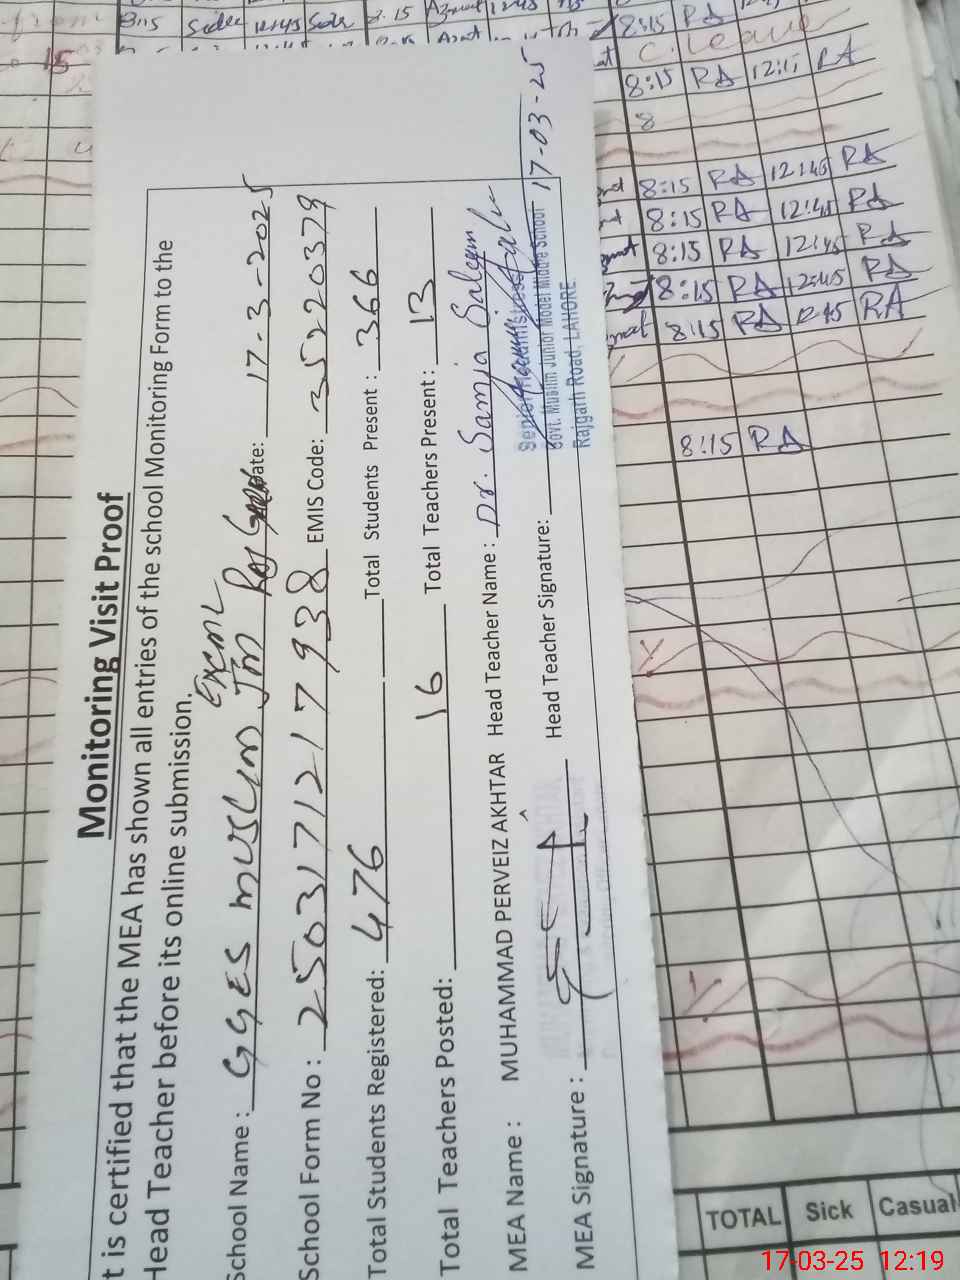 Monitoring Visit Proof
t is certified that the MEA has shown all entries of the school Monitoring Form to the
Head Teacher before its online submission.
School Name : GGES MUSLIM Jm Date: 17-3-2025
School Form No : 2503171217938 EMIS Code: 35220379
Total Students Registered: 476 Total Students Present : 366
Total Teachers Posted: 16 Total Teachers Present : 13
MEA Name : MUHAMMAD PERVEIZ AKHTAR Head Teacher Name : Dr. Samia Saleem
MEA Signature : Head Teacher Signature: 17-03-25
Senior Headmistress
Govt. Muslim Junior Model Middle School
Rajgarh Road, LAHORE
8:15 RA
C. Leave
8:15 RA 12:15 RA
8
8:15 RA 12:45 RA
8:15 RA 12:45 RA
8:15 RA 12:45 RA
8:15 RA 12:45 RA
8:15 RA 12:45 RA
8:15 RA
TOTAL Sick Casual
17-03-25 12:19